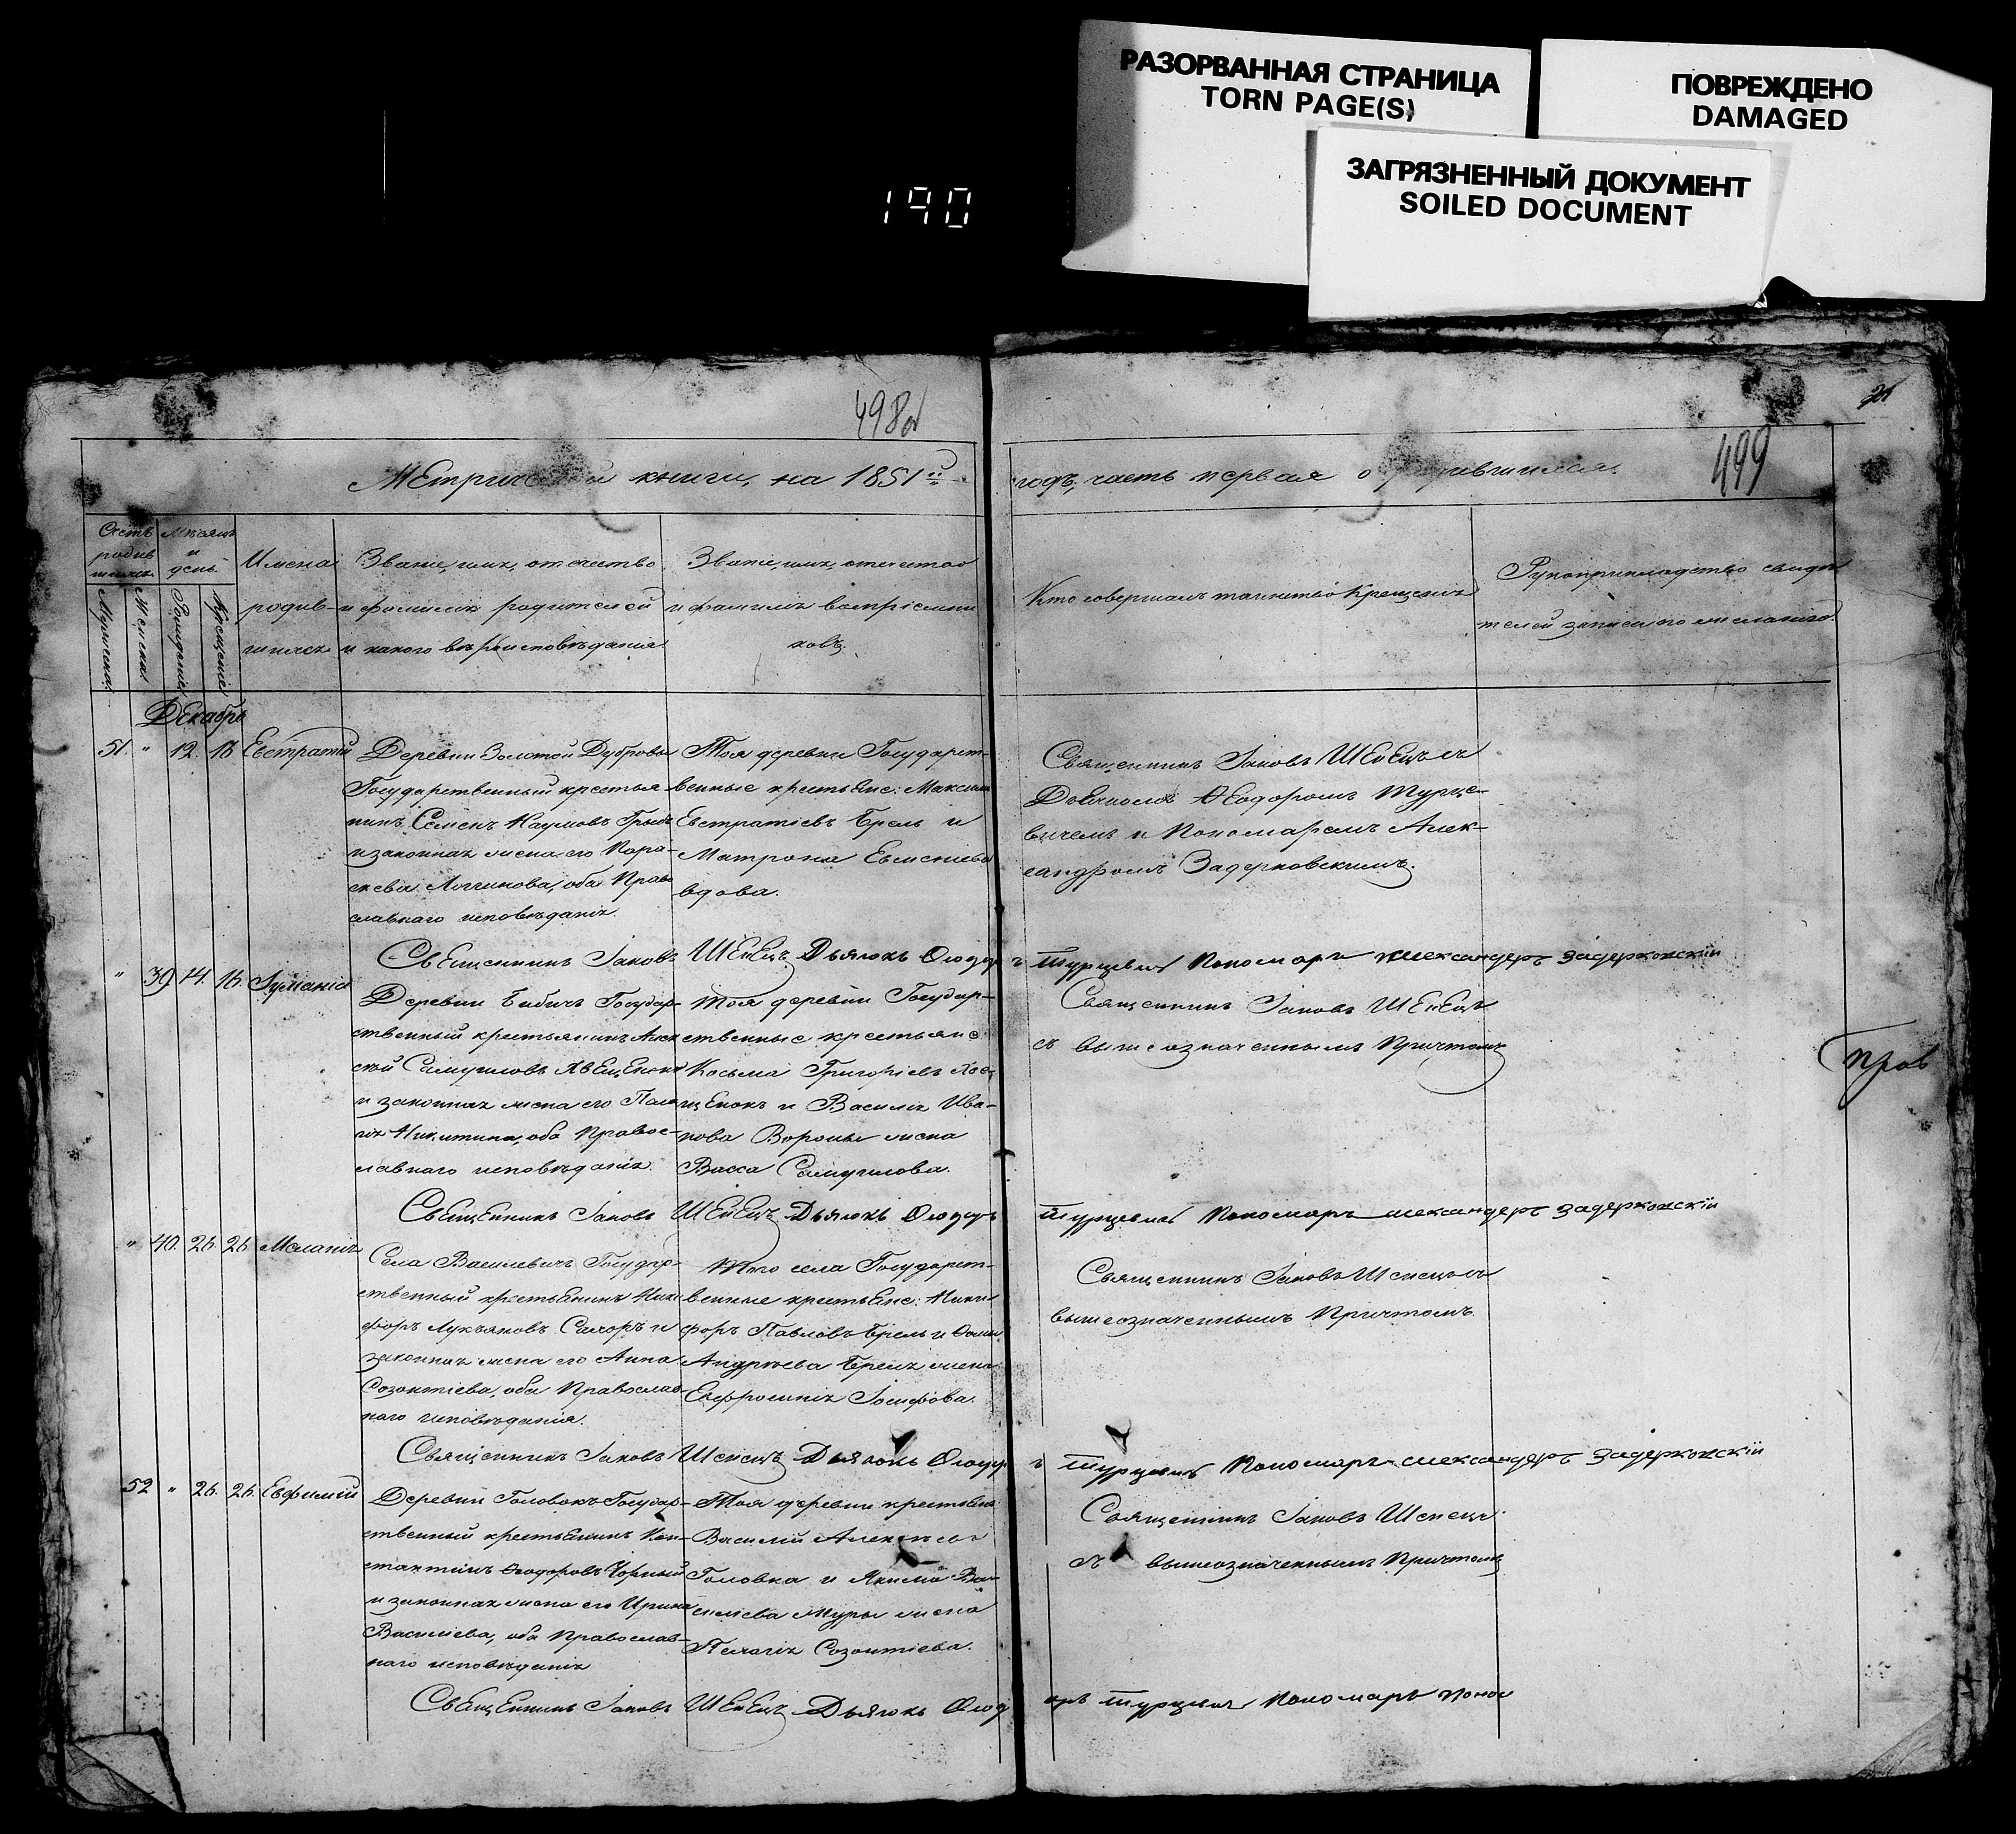 РАЗОРВАННАЯ СТРАНИЦА
TORN PAGE(S)
ПОВРЕЖДЕНО
DAMAGED
ЗАГРЯЗНЕННЫЙ ДОКУМЕНТ
SOILED DOCUMENT
190
498об
21
499
Метрической книги, на 1851й
годъ, часть первая о родившихся.
Счетъ родив шихся
Мужеска
Женска
Мѣсяцъ и день
Рождение
Крещение
Имена
родив-
шихся
Звание, имя, отчество
и фамилия родителей
и какого вѣроисповѣдания
Звание, имя, отечество
и фамилия воспріемни
ковъ.
Кто совершалъ таинство Крещения
Рукоприкладство свидѣ
телей записи по желанію.
Декабрь
51. " 12. 18 Евстратій
Деревни Золотой Дубровы
Государственный крестья
нинъ Семенъ Наумовъ
и законная жена его Пара-
скева Логгинова, оба Право
славнаго исповѣданія.
Тоя деревни Государст-
венные крестьяне: Максим
Евстратіевъ Брель и
Матрона
вдова.
Священникъ Іаковъ Шенецъ съ
Дьячкомъ Ѳеодоромъ Турце-
вичемъ и Пономаремъ Алек-
сандромъ Задерковскимъ.
Священникъ Іаковъ Шенецъ Дьячокъ Ѳеодоръ Турцевичъ Пономарь Александеръ Задерковскій
" 39. 14. 16. Іуліанія
Деревни Бабичъ Государ-
ственный крестьянинъ Алек
сѣй Самуиловъ Хвещенокъ
и законная жена его Пала
гія Никитина, оба Правос-
лавнаго исповѣданія.
Тоя деревни Государ-
ственные крестьяне
Косьма Григоріевъ Хве
щенокъ и Василія Ива-
нова Вороны жена
Васса Самуилова.
Священникъ Іаковъ Шенецъ
съ вышеозначеннымъ Причтомъ
Пров
Священникъ Іаковъ Шенецъ Дьячокъ Ѳеодоръ Турцевичъ Пономарь Александеръ Задерковскій
" 40. 26. 26 Меланія
Села Василевичъ Государ-
ственный крестьянинъ Ники
форъ Лукьяновъ и
законная жена его Анна
Созонтіева, оба Православ
наго исповѣданія.
Того села Государст-
венные крестьяне: Ники-
форъ Павловъ Брель и
Андреева Бреля жена
Евфросинія Іосифова.
Священникъ Іаковъ Шенецъ съ
вышеозначеннымъ Причтомъ.
Священникъ Іаковъ Шенецъ Дьячокъ Ѳеодоръ Турцевичъ Пономарь Александеръ Задерковскій
52 " 26. 26. Евфимій
Деревни Головокъ Государ-
ственный крестьянинъ Кон-
стантинъ Ѳеодоровъ Чорный
и законная жена его Ирина
Василіева, оба Православ-
наго исповѣданія
Тоя деревни крестьяне
Василій Алексѣевъ
Головка и Якима Ва-
силіева жена
Пелагія Созонтіева.
Священникъ Іаковъ Шенецъ
съ вышеозначеннымъ Причтомъ
Священникъ Іаковъ Шенецъ Дьячокъ Ѳеодоръ Турцевичъ Пономарь